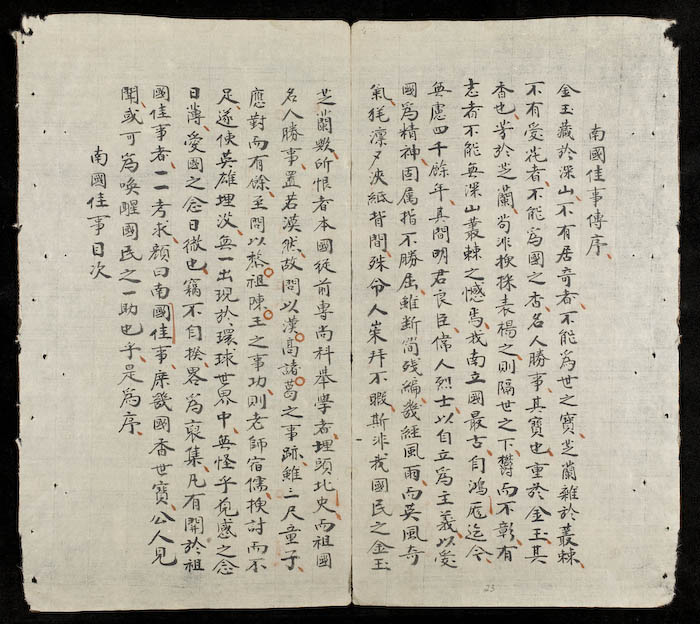 南國佳事傳序
金玉藏於深山不有居奇者不能爲世之寶芝蘭雜於叢棘
不有愛花者不能爲國之香名人勝事其寶也重於金玉其
香也芳於芝蘭尚非掞採表楊之則隔世之下欝而不彰有
志者不能無深山叢棘之憾焉我南立國最古自鴻厖迄今
無慮四千餘年其間明君良臣偉人烈士以自立爲主義以愛
國爲精神固属指不勝屈雖断簡残編幾經風雨而英風奇
氣猶凜夕浹紙背間殊令人崇拜不暇斯非我國民之金玉
芝蘭歟所恨者本國從前專尚科舉學者埋頭北史而祖國
名人勝事置若漠然故問以漢高諸葛之事跡雖三尺童子
應對而有餘至問以黎祖陳王之事功則老師宿儒掞討而不
足遂使英雄埋没無一出現於環球世界中無怪乎觀感之念
日薄愛國之念日微也竊不自揆畧爲裒集凡有開於祖
國佳事者一一考求顔曰南國佳事庶幾國香世寶公人見
聞或可爲喚醒國民之一助也乎是爲序
南國佳事目次
23